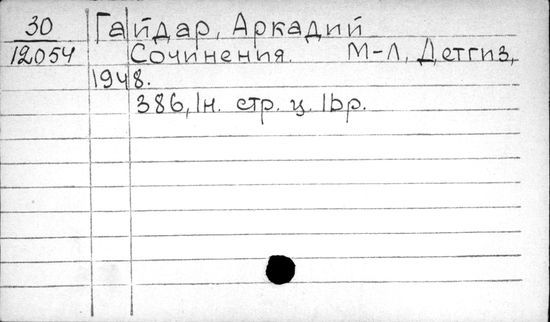 30 Гайдар, Аркадий
12054 Сочинения. М-Л, Детгиз,
1948.
386, 1н. стр. ц. 16р.